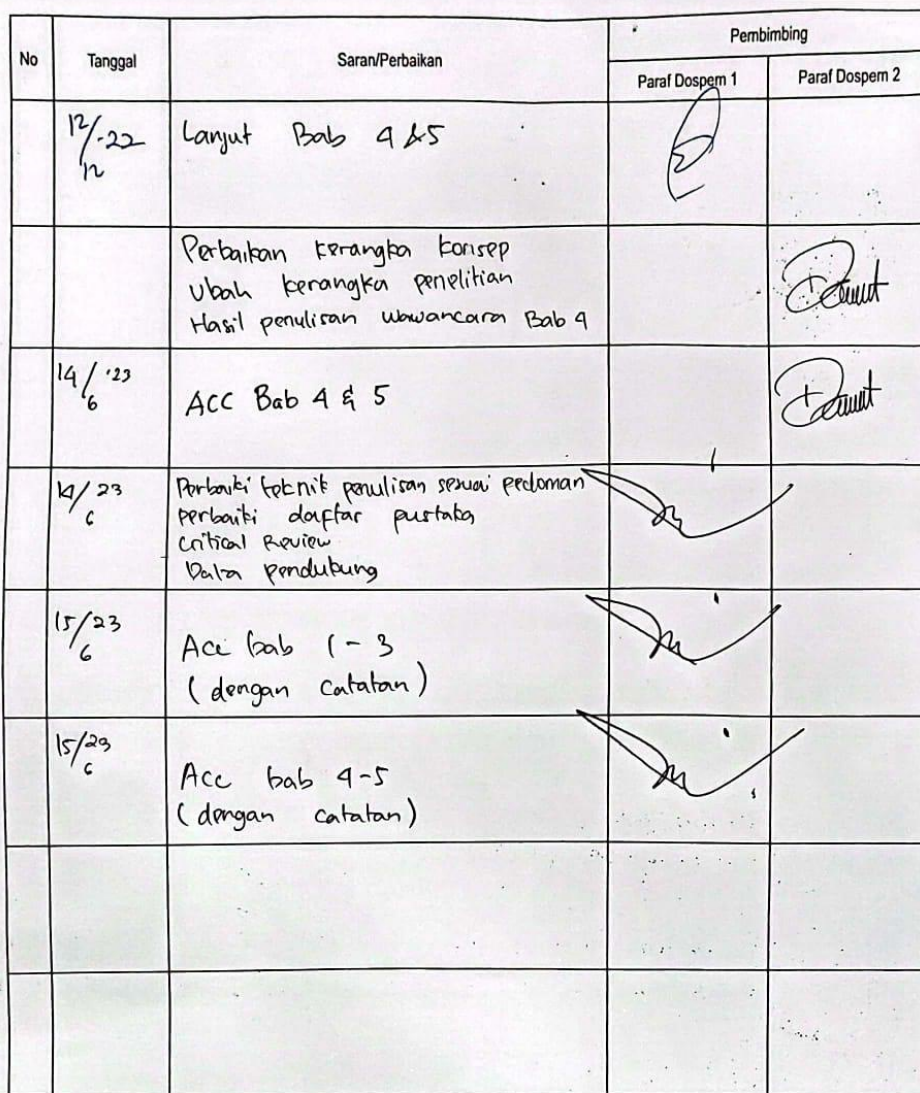 Pembimbing
No Tanggal Saran/Perbaikan
Paraf Dospem 1 Paraf Dospem 2
12/12-22 Lanjut Bab 4 & 5
Perbaikan kerangka konsep
Ubah kerangka penelitian
Hasil penulisan wawancara Bab 4
14/6 '23 ACC Bab 4 & 5
14/6 23 Perbaiki teknik penulisan sesuai pedoman
perbaiki daftar pustaka
Critical Review
Data pendukung
15/6 23 Acc bab 1 - 3
(dengan catatan)
15/6 23 Acc bab 4-5
(dengan catatan)